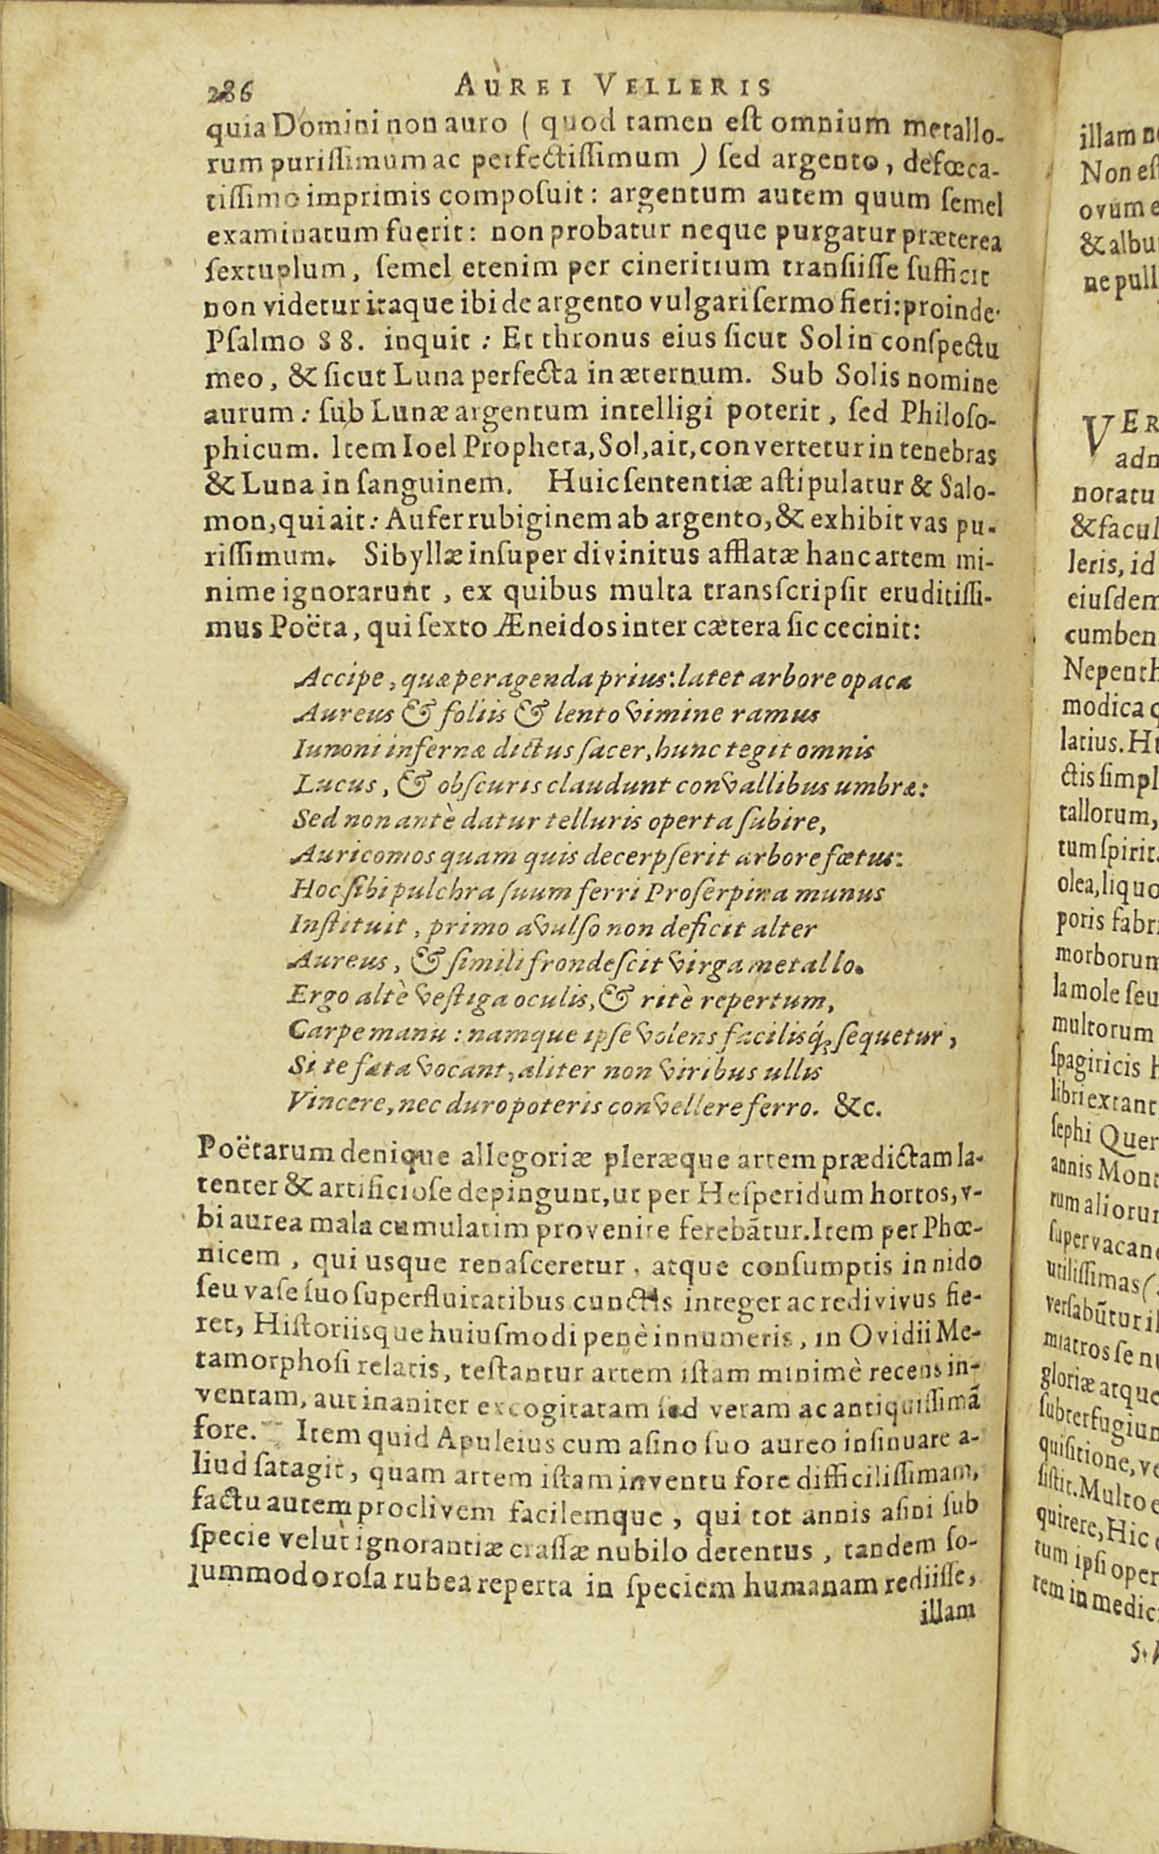 286 AUREI VELLERIS
quia Domini non auro ( quod tamen est omnium metallo-
rum purissimum ac perfectissimum ) sed argento, defœca-
tissimo imprimis composuit: argentum autem quum semel
examinatum fuerit: non probatur neque purgatur præterea
sextuplum, semel etenim per cineritium transiisse sufficit
non videtur itaque ibi de argento vulgari sermo fieri: proinde
Psalmo 88. inquit: Et thronus eius sicut Sol in conspectu
meo, & sicut Luna perfecta in æternum. Sub Solis nomine
aurum: sub Lunæ argentum intelligi poterit, sed Philoso-
phicum. Item Ioel Propheta, Sol, ait, convertetur in tenebras
& Luna in sanguinem. Huic sententiæ astipulatur & Salo-
mon, qui ait: Aufer rubiginem ab argento, & exhibit vas pu-
rissimum. Sibyllæ insuper divinitus afflatæ hanc artem mi-
nime ignorarunt, ex quibus multa transscripsit eruditissi-
mus Poëta, qui sexto Æneidos inter cætera sic cecinit:
Accipe, quæ peragenda prius: latet arbore opaca
Aureus & foliis & lento vimine ramus
Iunoni infernæ dictus sacer, hunc tegit omnis
Lucus, & obscuris claudunt convallibus umbræ:
Sed non antè datur telluris operta subire,
Auricomos quam quis decerpserit arbore fœtus:
Hoc sibi pulchra suum ferri Proserpina munus
Instituit, primo avulso non deficit alter
Aureus, & simili frondescit virga metallo.
Ergo altè vestiga oculis, & ritè repertum,
Carpe manu: namque ipse volens facilisq́; sequetur,
Si te fata vocant, aliter non viribus ullis
Vincere, nec duro poteris convellere ferro. &c.
Poëtarum denique allegoriæ pleræque artem prædictam la-
tenter & artificiose depingunt, ut per Hesperidum hortos, v-
bi aurea mala cumulatim provenire ferebãtur. Item per Phœ-
nicem, qui usque renasceretur, atque consumptis in nido
seu vase suo superfluitatibus cunctis integer ac redivivus fie-
ret, Historiisque huiusmodi penè innumeris, in Ovidii Me-
tamorphosi relatis, testantur artem istam minimè recens in-
ventam, aut inaniter excogitatam sed veram ac antiquissimã
fore. Item quid Apuleius cum asino suo aureo insinuare a-
liud satagit, quam artem istam inventu fore difficilissimam,
factu autem proclivem facilemque, qui tot annis asini sub
specie velut ignorantiæ crassæ nubilo detentus, tandem so-
lummodo rosa rubea reperta in speciem humanam rediisse,
illam
illam
Non es
ovum
& albu
ne pull
VER
adn
noratu
& facul
leris, id
eiusdem
cumben
Nepenth
modica
latius. H
ctis simpl
tallorum,
tum spirit
olea, liquo
poris fabri
morborum
la mole seu
multorum
spagiricis
libri extant
sephi Quer
annis Mon
rum alioru
supervacan
utilissimas (
versabũtur
miatros se
gloriæ atque
subterfugiu
quisitione, v
sistit. Multo
quirere, Hic
tum ipsi oper
rem in medic